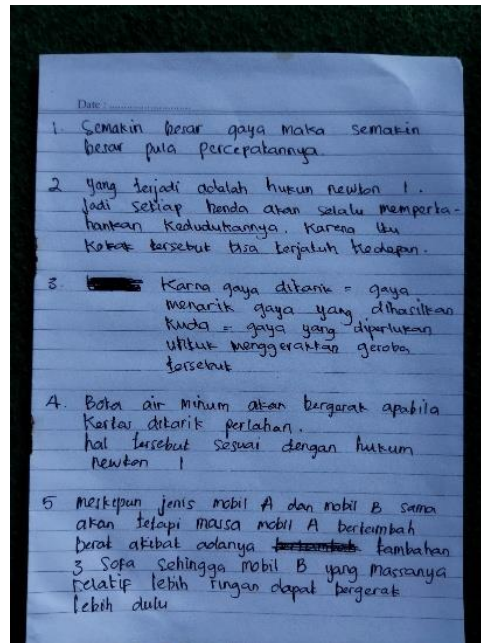 Date : ........................
1. Semakin besar gaya maka semakin
besar pula percepatannya.
2 yang terjadi adalah hukun newton 1.
Jadi setiap benda akan selalu memperta-
hankan Kedudukannya. Karena itu
Kakak tersebut bisa terjatuh kedepan.
3. Karna gaya ditarik = gaya
menarik gaya yang dihasilkan
Kuda = gaya yang diperlukan
untuk menggerakkan geroba
tersebut
4. Botol air minum akan bergerak apabila
Kertas ditarik perlahan.
hal tersebut sesuai dengan hukum
newton 1
5 meskipun jenis mobil A dan mobil B sama
akan tetapi massa mobil A bertambah
berat akibat adanya tambahan
3 sofa sehingga mobil B yang massanya
relatif lebih ringan dapat bergerak
lebih dulu